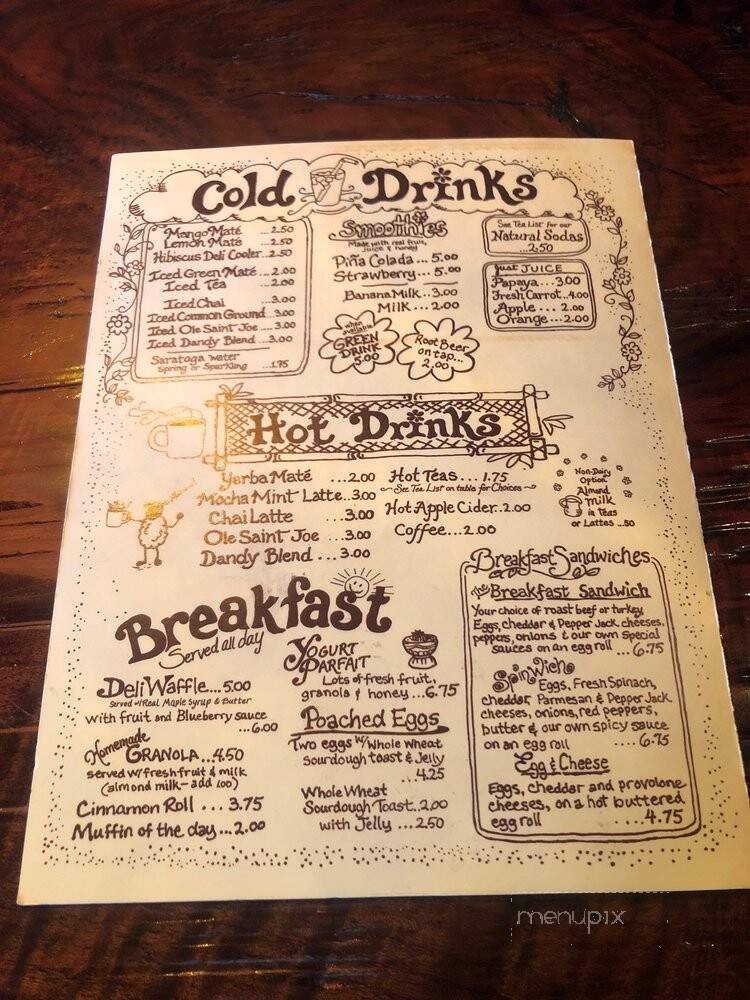 Cold Drinks
Mango Maté ...2.50
Lemon Maté ...2.50
Hibiscus Deli Cooler..2.50
Iced Green Maté...2.00
Iced Tea ...2.00
Iced Chai ...3.00
Iced Common Ground..3.00
Iced Ole Saint Joe...3.00
Iced Dandy Blend...3.00
Saratoga water
Spring or Sparkling ...1.75
Smoothies
Made with real fruit,
juice & honey
Piña Colada...5.00
Strawberry...5.00
Banana Milk..3.00
Milk...2.00
when
available
GREEN
DRINK
5.00
Root Beer
on tap...
2.00
See Tea List for our
Natural Sodas
...2.50
Just JUICE
Papaya...3.00
Fresh Carrot..4.00
Apple...2.00
Orange...2.00
Hot Drinks
Yerba Maté ...2.00
Mocha Mint Latte..3.00
Chai Latte ...3.00
Ole Saint Joe ...3.00
Dandy Blend...3.00
Hot Teas...1.75
See Tea List on table for Choices
Hot Apple Cider..2.00
Coffee...2.00
Non-Dairy
Option
Almond
milk
in Teas
or Lattes ..50
Breakfast
Served all day
Deli Waffle...5.00
Served w/Real Maple Syrup & Butter
with fruit and Blueberry sauce
...6.00
Homemade
GRANOLA...4.50
served w/fresh fruit & milk
(almond milk- add 1.00)
Cinnamon Roll ... 3.75
Muffin of the day...2.00
YOGURT
PARFAIT
Lots of fresh fruit,
granola & honey...6.75
Poached Eggs
Two eggs w/Whole Wheat
Sourdough toast & Jelly
...4.25
Whole Wheat
Sourdough Toast..2.00
with Jelly ...2.50
Breakfast Sandwiches
The Breakfast Sandwich
Your choice of roast beef or turkey,
Eggs, cheddar & Pepper Jack cheeses,
peppers, onions & our own special
sauces on an egg roll ...6.75
Spinwich
Eggs, Fresh Spinach,
cheddar, Parmesan & Pepper Jack
cheeses, onions, red peppers,
butter & our own spicy sauce
on an egg roll ....6.75
Egg & Cheese
Eggs, cheddar and provolone
cheeses, on a hot buttered
egg roll .....4.75
menupix